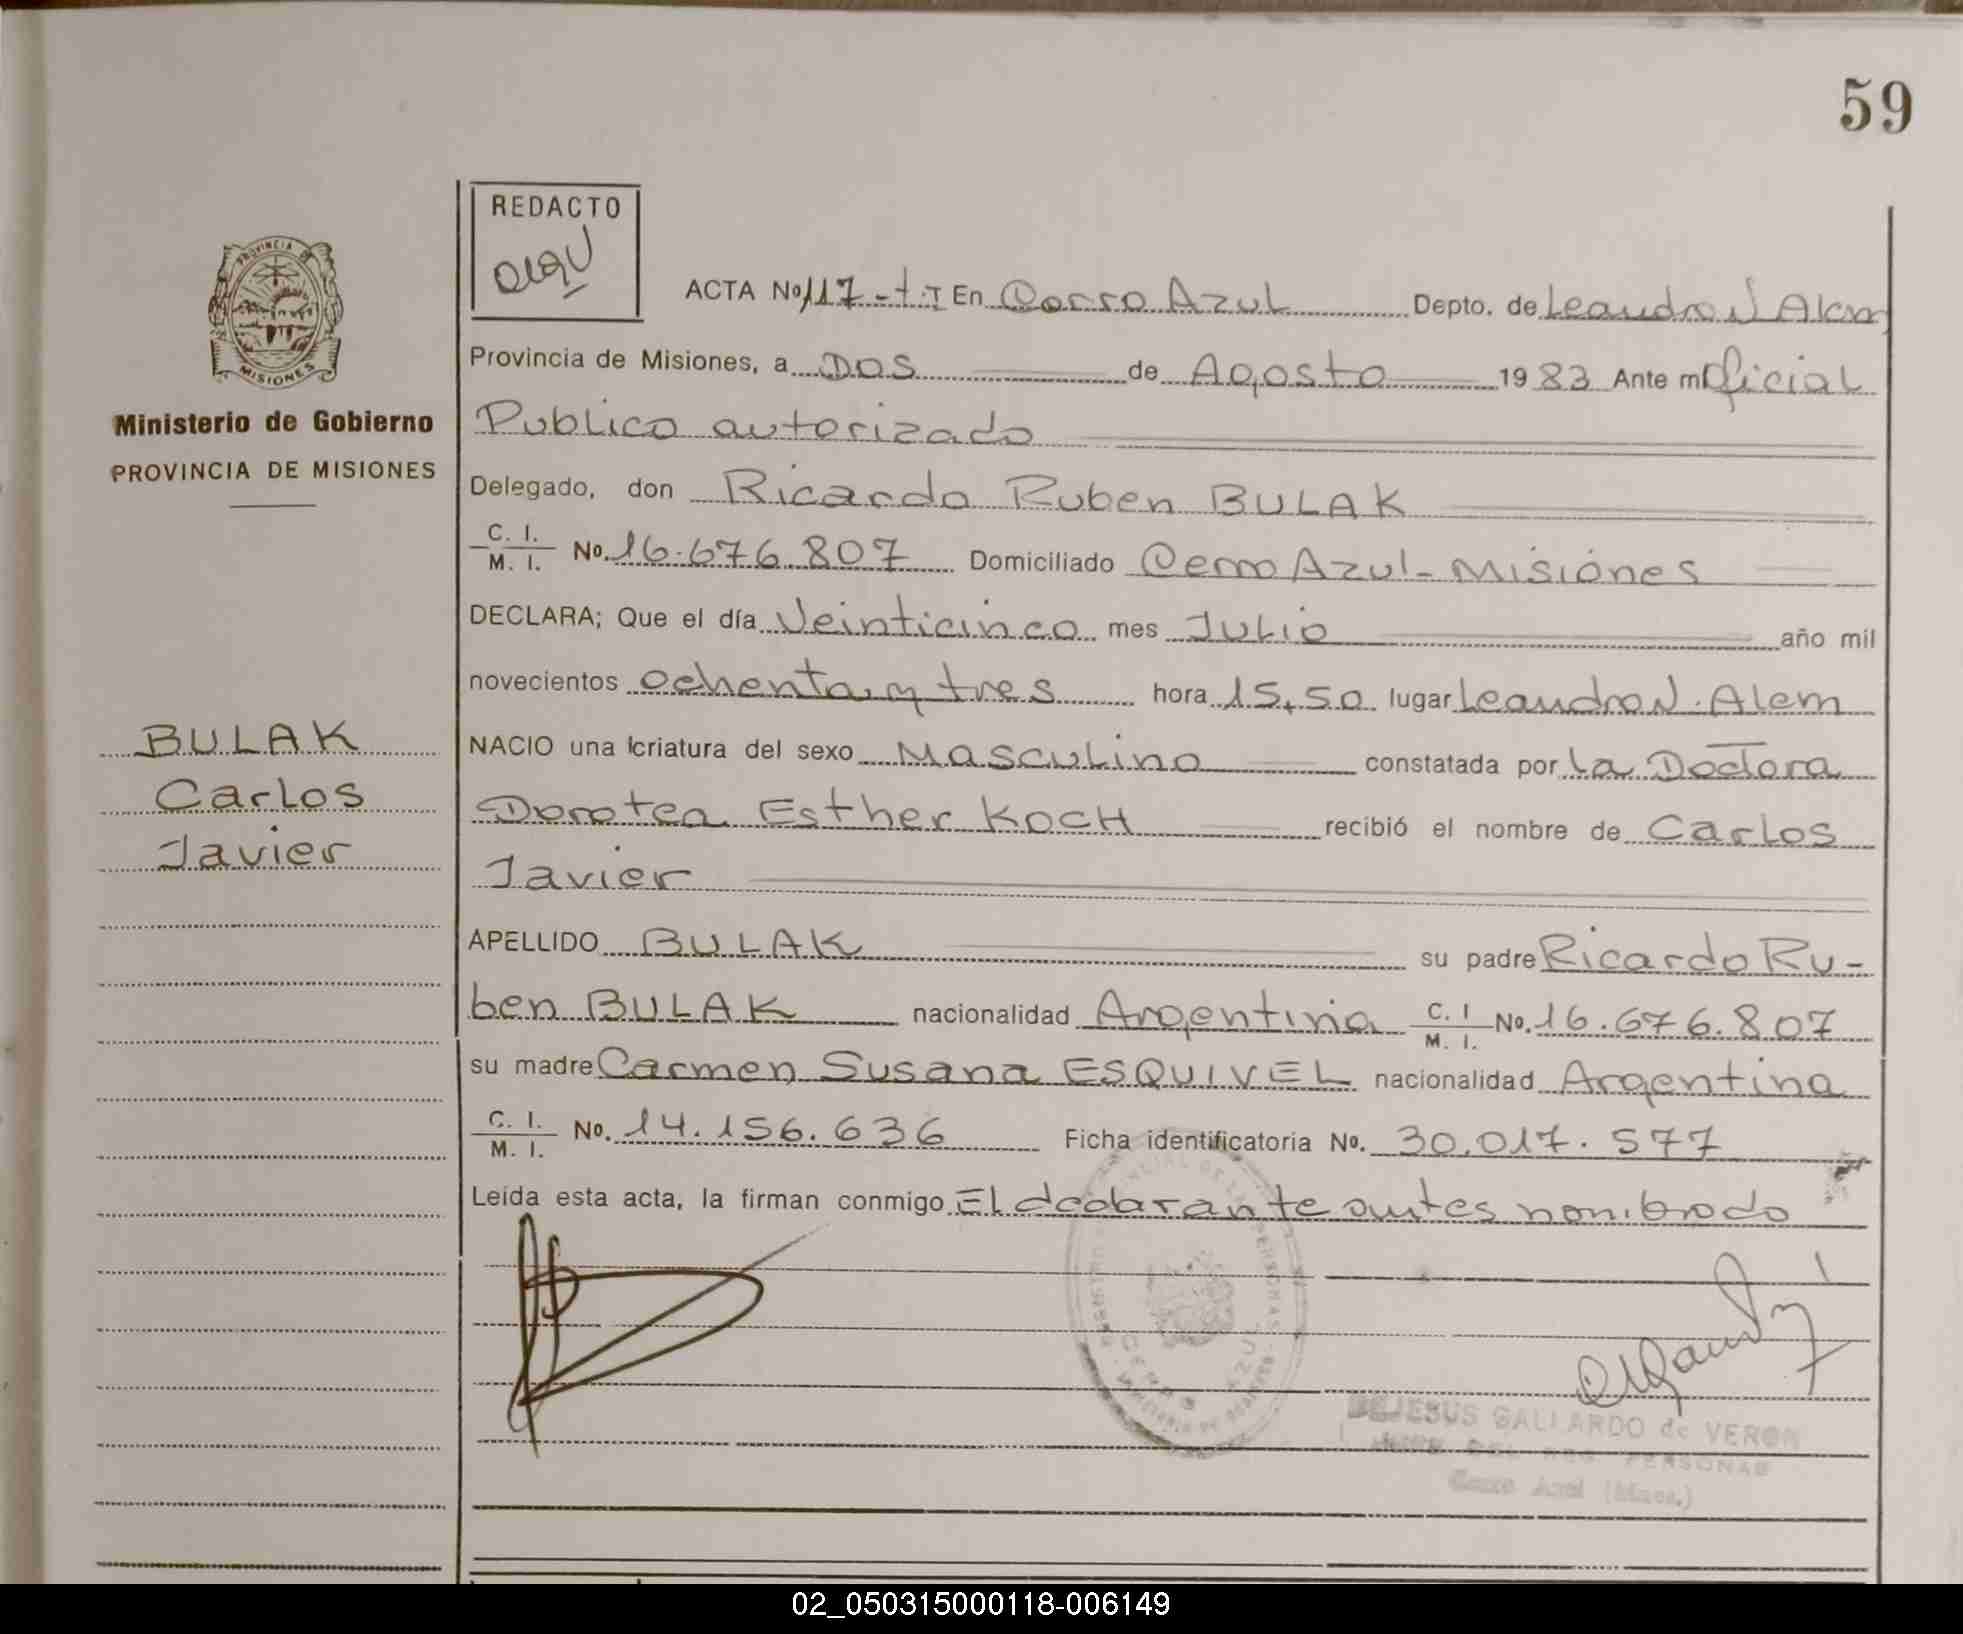 59
REDACTO
ACTA No 117-t.I En Cerro Azul Depto. de Leandro N Alem
Provincia de Misiones, a Dos de Agosto 1983 Ante mi Oficial
Publico autorizado
Delegado, don Ricardo Ruben BULAK
C. I. M. I. No. 16.676.807 Domiciliado Cerro Azul - Misiones
DECLARA; Que el día Veinticinco mes Julio año mil
novecientos ochenta y tres hora 15,50 lugar Leandro N. Alem
NACIO una criatura del sexo Masculino constatada por La Doctora
Dorotea Esther KOCH recibió el nombre de Carlos
Javier
APELLIDO BULAK su padre Ricardo Ru-
ben BULAK nacionalidad Argentina C. I M. I. No. 16.676.807
su madre Carmen Susana ESQUIVEL nacionalidad Argentina
C. I. M. I. No. 14.156.636 Ficha identificatoria No. 30.017.577
Leída esta acta, la firman conmigo El declarante antes nombrado
PROVINCIA DE
MISIONES
Ministerio de Gobierno
PROVINCIA DE MISIONES
BULAK
Carlos
Javier
CERRO AZUL
DE JESUS GALLARDO de VERON
DEL REG PERSONAS
Cerro Azul (Mnes.)
02_050315000118-006149